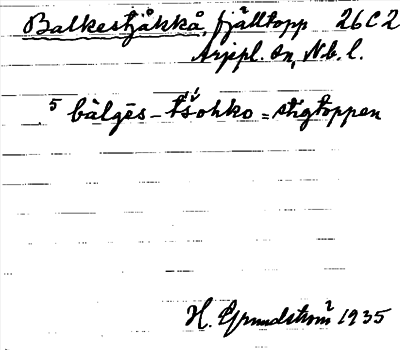 Balkestjåkkå, fjälltopp 26C2
Arjepl. sn, Nb. l.
5 bàlgēs - tšohko = stigtoppen
H. Grundström 1935